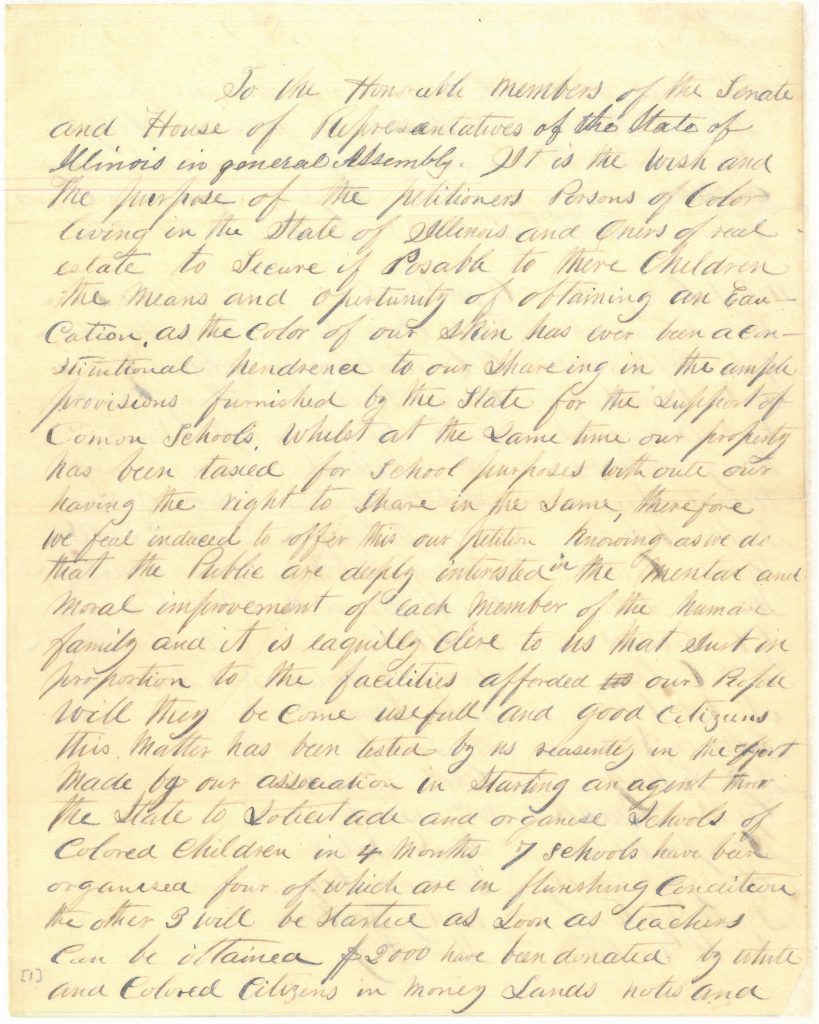 To the Honorable members of the Senate
and House of Representatives of the State of
Illinois in general Assembly. It is the wish and
the purpose of the petitioners Persons of Color
living in the State of Illinois and Oners of real
estate to Secure if Posable to there Children
the means and opertunity of obtaining an Edu-
cation, as the Color of our Skin has ever been a con-
stitutional hendrence to our Shareing in the ample
provisions furnished by the State for the Support of
Comon Schools, Whilst at the Same time our property
has been taxed for School purposes without our
having the right to Share in the Same, therefore
we feal induced to offer this our petition Knowing as we do
that the Public are deeply interested in the mental and
Moral improvement of each member of the human
family and it is eaquilly Clere to us that Just in
proportion to the facilities afforded our People
Will they be Come usefull and good Citizens
this Matter has been tested by us reasently in the effort
Made by our association in Starting an agent throu
the State to Solicit ade and organise Schools of
Colored Children in 4 Months 7 Schools have been
organised four of which are in flurishing Condition
the other 3 will be Started as Soon as teachers
Can be obtained $2000 have been donated by white
[1]
and Colored Citizens in money Lands notes and